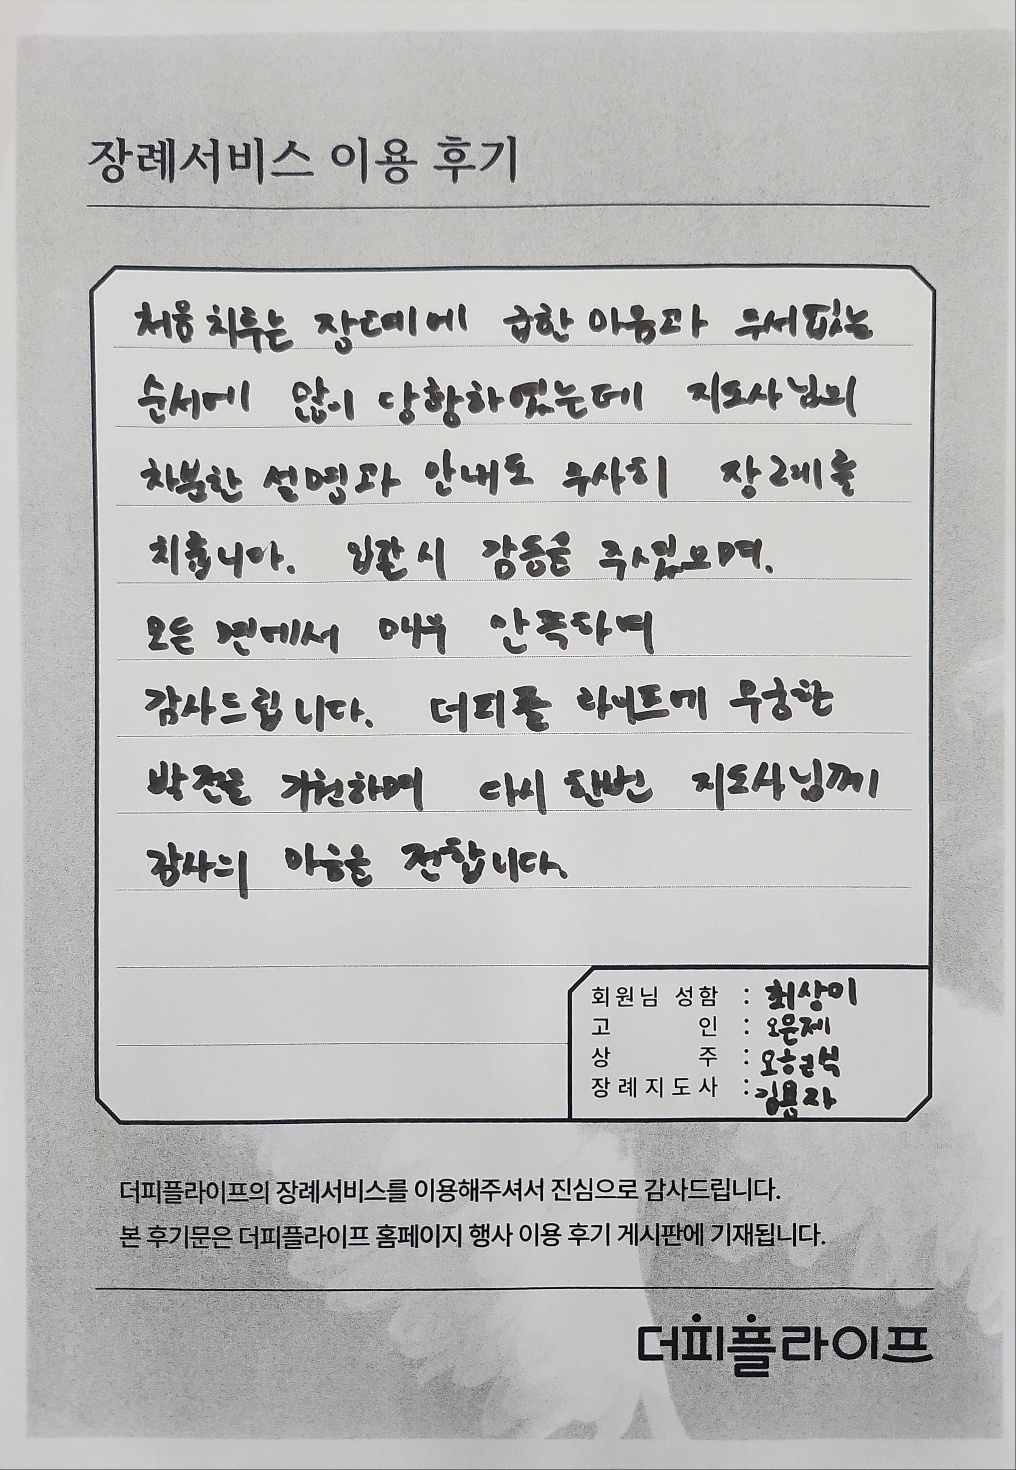 장례서비스 이용 후기
처음 치루는 장례에 급한 마음과 두서없는
순서에 많이 당황하였는데 지도사님의
차분한 설명과 안내로 무사히 장례를
치룹니다. 입관시 감동을 주셨으며,
모든 면에서 매우 만족하며
감사드립니다. 더피플 라이프에 무궁한
발전을 기원하며 다시 한번 지도사님께
감사의 마음을 전합니다.
회원님 성함 : 최상미
고 인 : 오은제
상 주 : 오현식
장례지도사 : 김용자
더피플라이프의 장례서비스를 이용해주셔서 진심으로 감사드립니다.
본 후기문은 더피플라이프 홈페이지 행사 이용 후기 게시판에 기재됩니다.
더피플라이프